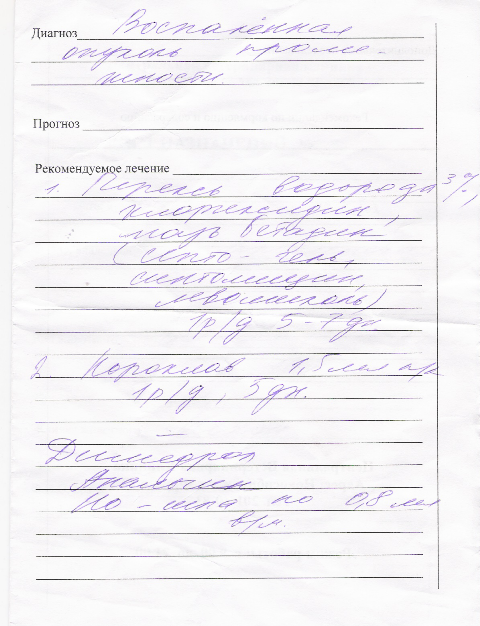 Диагноз Воспалённая
опухоль проме-
жности
Прогноз
Рекомендуемое лечение
1. Перекись водорода 3%,
хлоргексидин,
мазь Бетадин
(Септо-гель,
синтомицин,
левомиколь)
1р/д 5-7 дн.
2 1,5 мл п/к
1р/д, 5 дн.
Димедрол
Анальгин
Но-шпа по 0,8 мл
в/м.